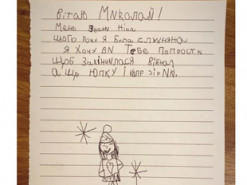 Вітаю Миколай!
Мене звати Ніна
Цього року я Була слухняной
Я Хочу Тебе Попрости
щоб закінчилася Війна
а ще Юпку і